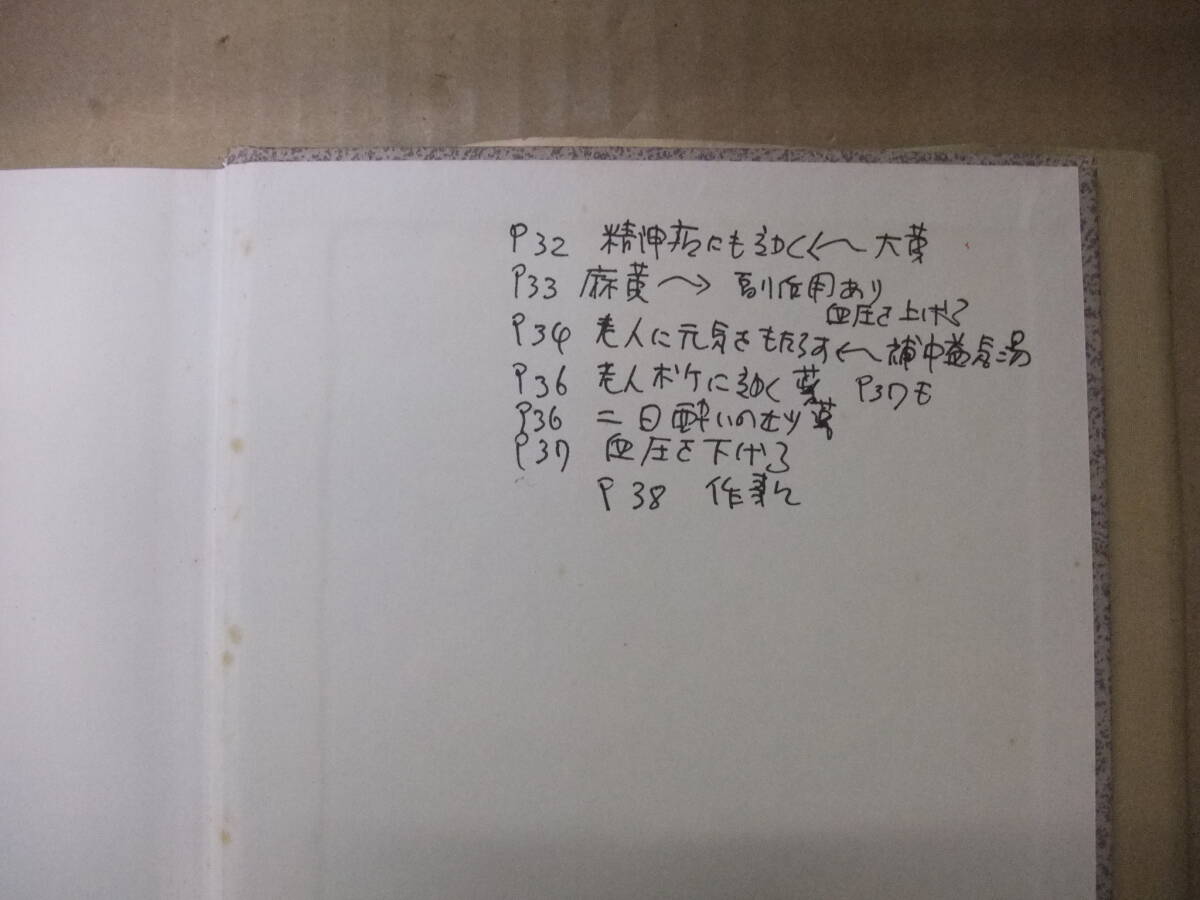 P32 精神病にも効く← 大黄
P33 麻黄 → 副作用あり
血圧を上げる
P34 老人に元気をもたらす← 補中益気湯
P36 老人ボケに効く薬 P37も
P36 二日酔いの 薬
P37 血圧を下げる
P38